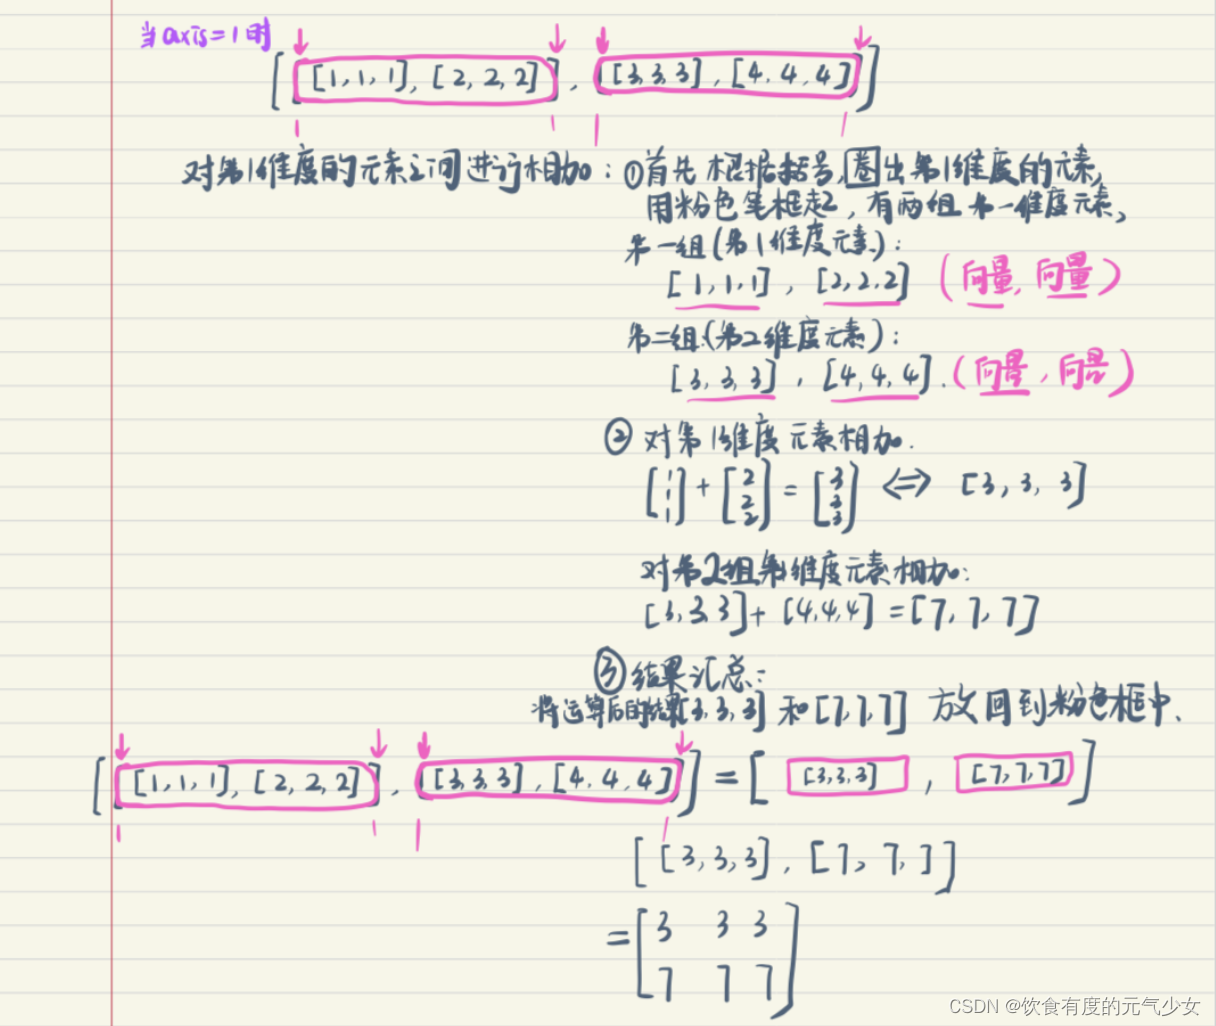 当axis=1时
[[[1,1,1],[2,2,2]],[[3,3,3],[4,4,4]]]
对第1维度的元素之间进行相加:①首先根据括号,圈出第1维度的元素,
用粉色笔框起,有两组第一维度元素,
第一组(第1维度元素):
[1,1,1],[2,2,2](向量,向量)
第二组(第2维度元素):
[3,3,3],[4,4,4].(向量,向量)
②对第1维度元素相加.
[1 1 1]+[2 2 2]=[3 3 3]⇔[3,3,3]
对第2组第1维度元素相加:
[3,3,3]+[4,4,4]=[7,7,7]
③结果汇总:
将运算后的结果[3,3,3]和[7,7,7]放回到粉色框中.
[[[1,1,1],[2,2,2]],[[3,3,3],[4,4,4]]]=[[3,3,3],[7,7,7]]
[[3,3,3],[7,7,7]]
=[3 3 3
7 7 7]
CSDN @饮食有度的元气少女